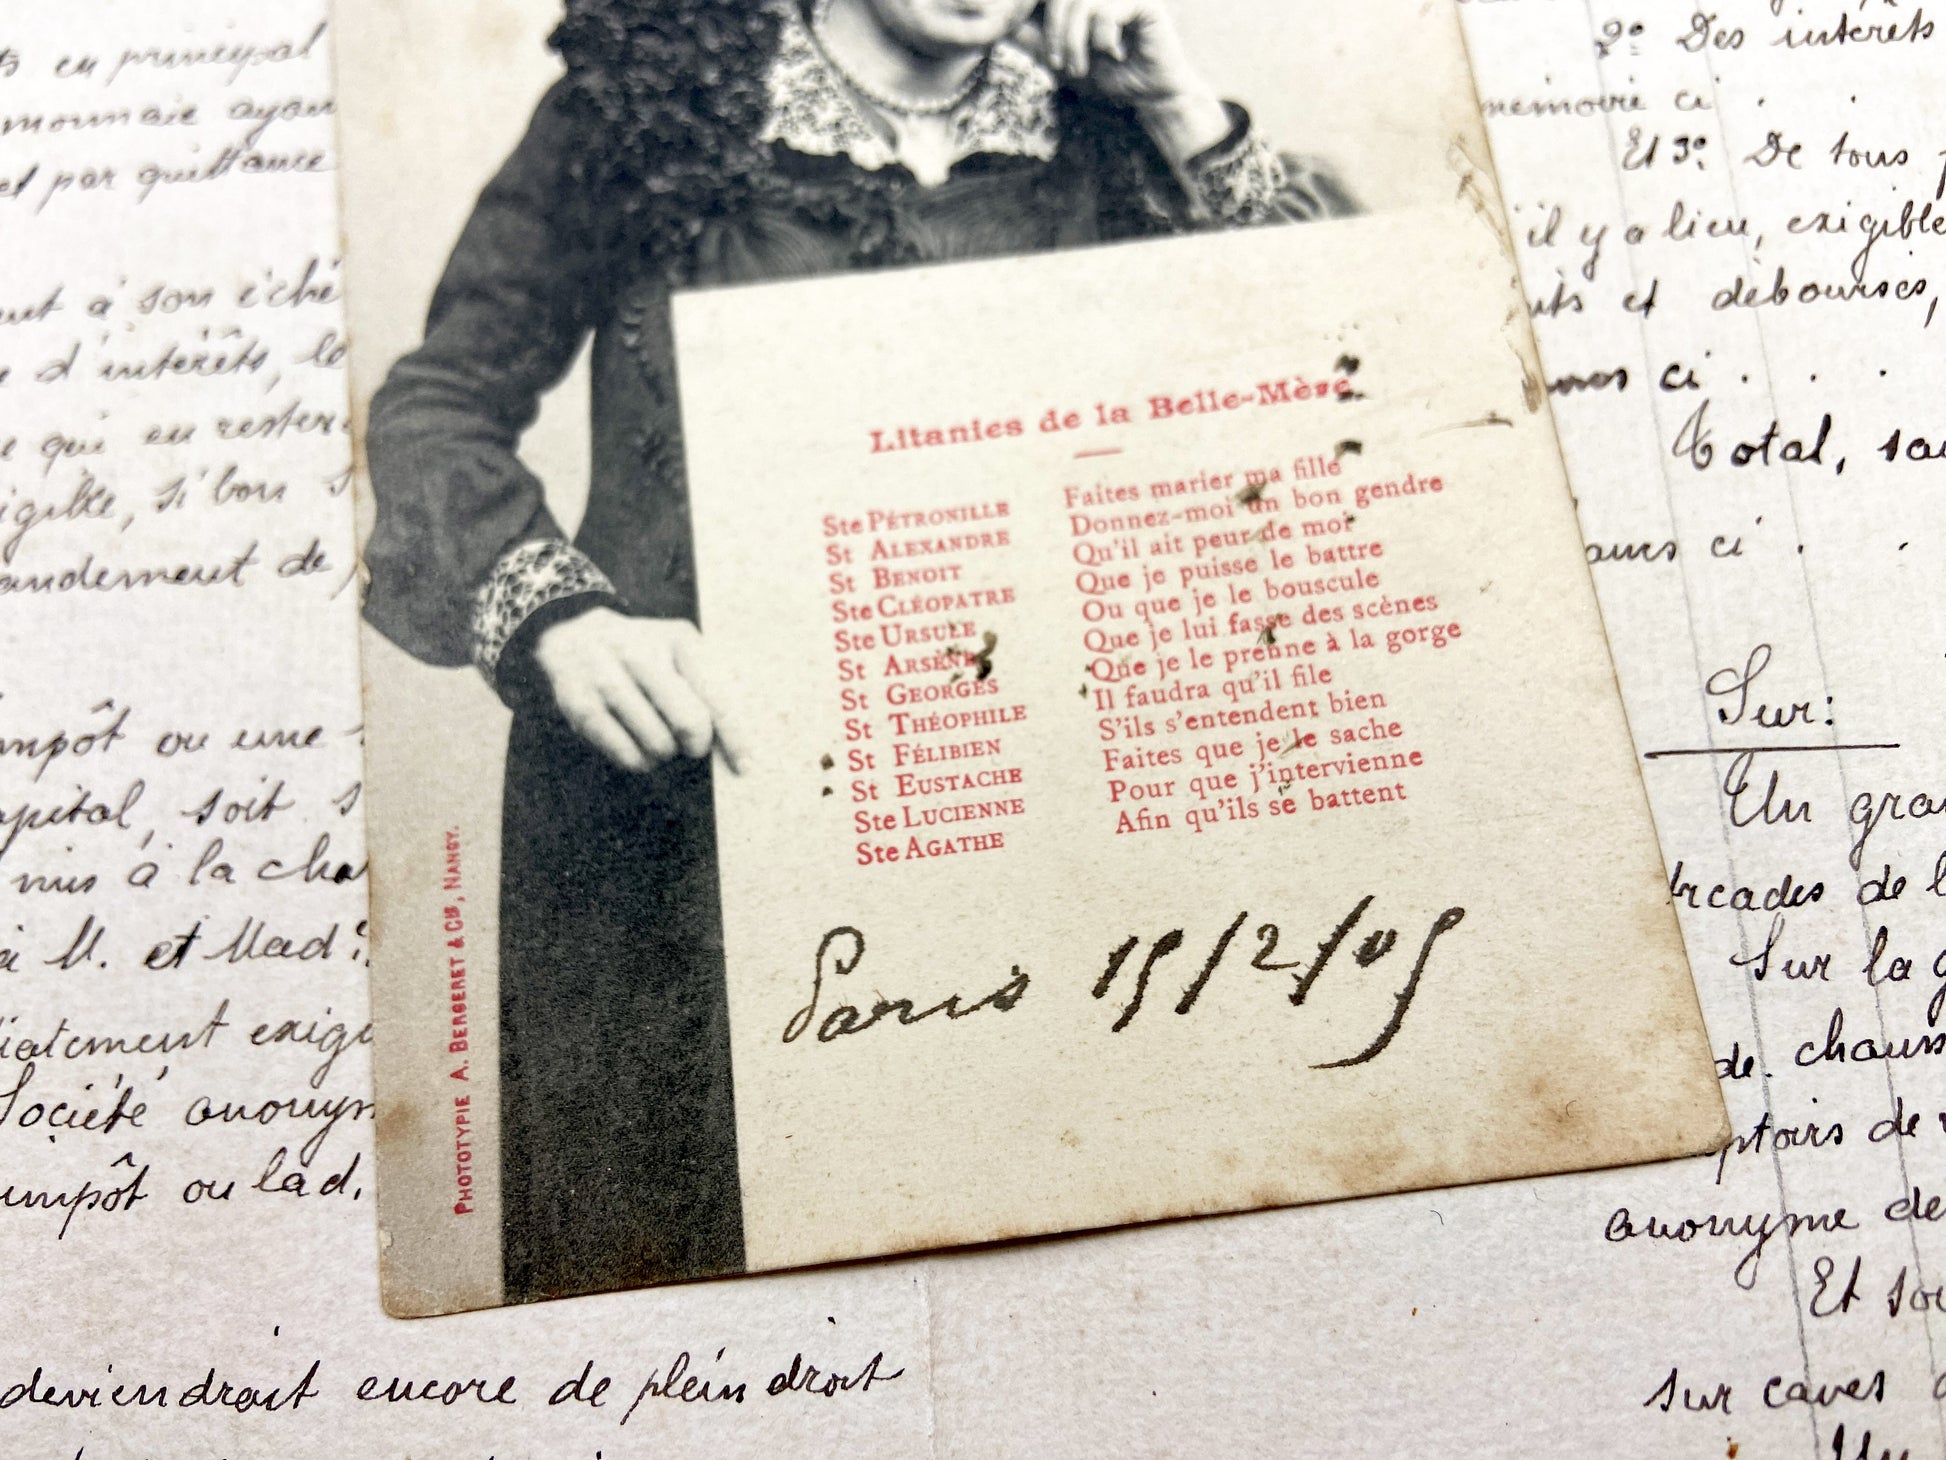 ts en principal
monnaie ayan
et par quittance
ent à son éché
e d'intérêts, le
e que en rester
igible, si bon s
andement de
impôt ou une
apital, soit s
mis à la cha
à M. et Mad
iatement exigi
Société anonym
impôt ou lad.
deviendrait encore de plein droit
Litanies de la Belle-Mère
Ste PÉTRONILLE Faites marier ma fille
St ALEXANDRE Donnez-moi un bon gendre
St BENOIT Qu'il ait peur de moi
Ste CLÉOPATRE Que je puisse le battre
Ste URSULE Ou que je le bouscule
St ARSÈNE Que je lui fasse des scènes
St GEORGES Que je le prenne à la gorge
St THÉOPHILE Il faudra qu'il file
St FÉLIBIEN S'ils s'entendent bien
St EUSTACHE Faites que je le sache
Ste LUCIENNE Pour que j'intervienne
Ste AGATHE Afin qu'ils se battent
Paris 15/2/05
PHOTOTYPIE A. BERGERET & Cie, NANCY.
2º Des intérêts
mémoire ci .
Et 3º. De tous
'il y a lieu, exigible
et débourses,
ci . . .
Total, sau
ci . .
Sur:
Un gra
arcades de l
Sur la g
de chauss
ptoirs de
anonyme de
Et sou
sur caves
Un